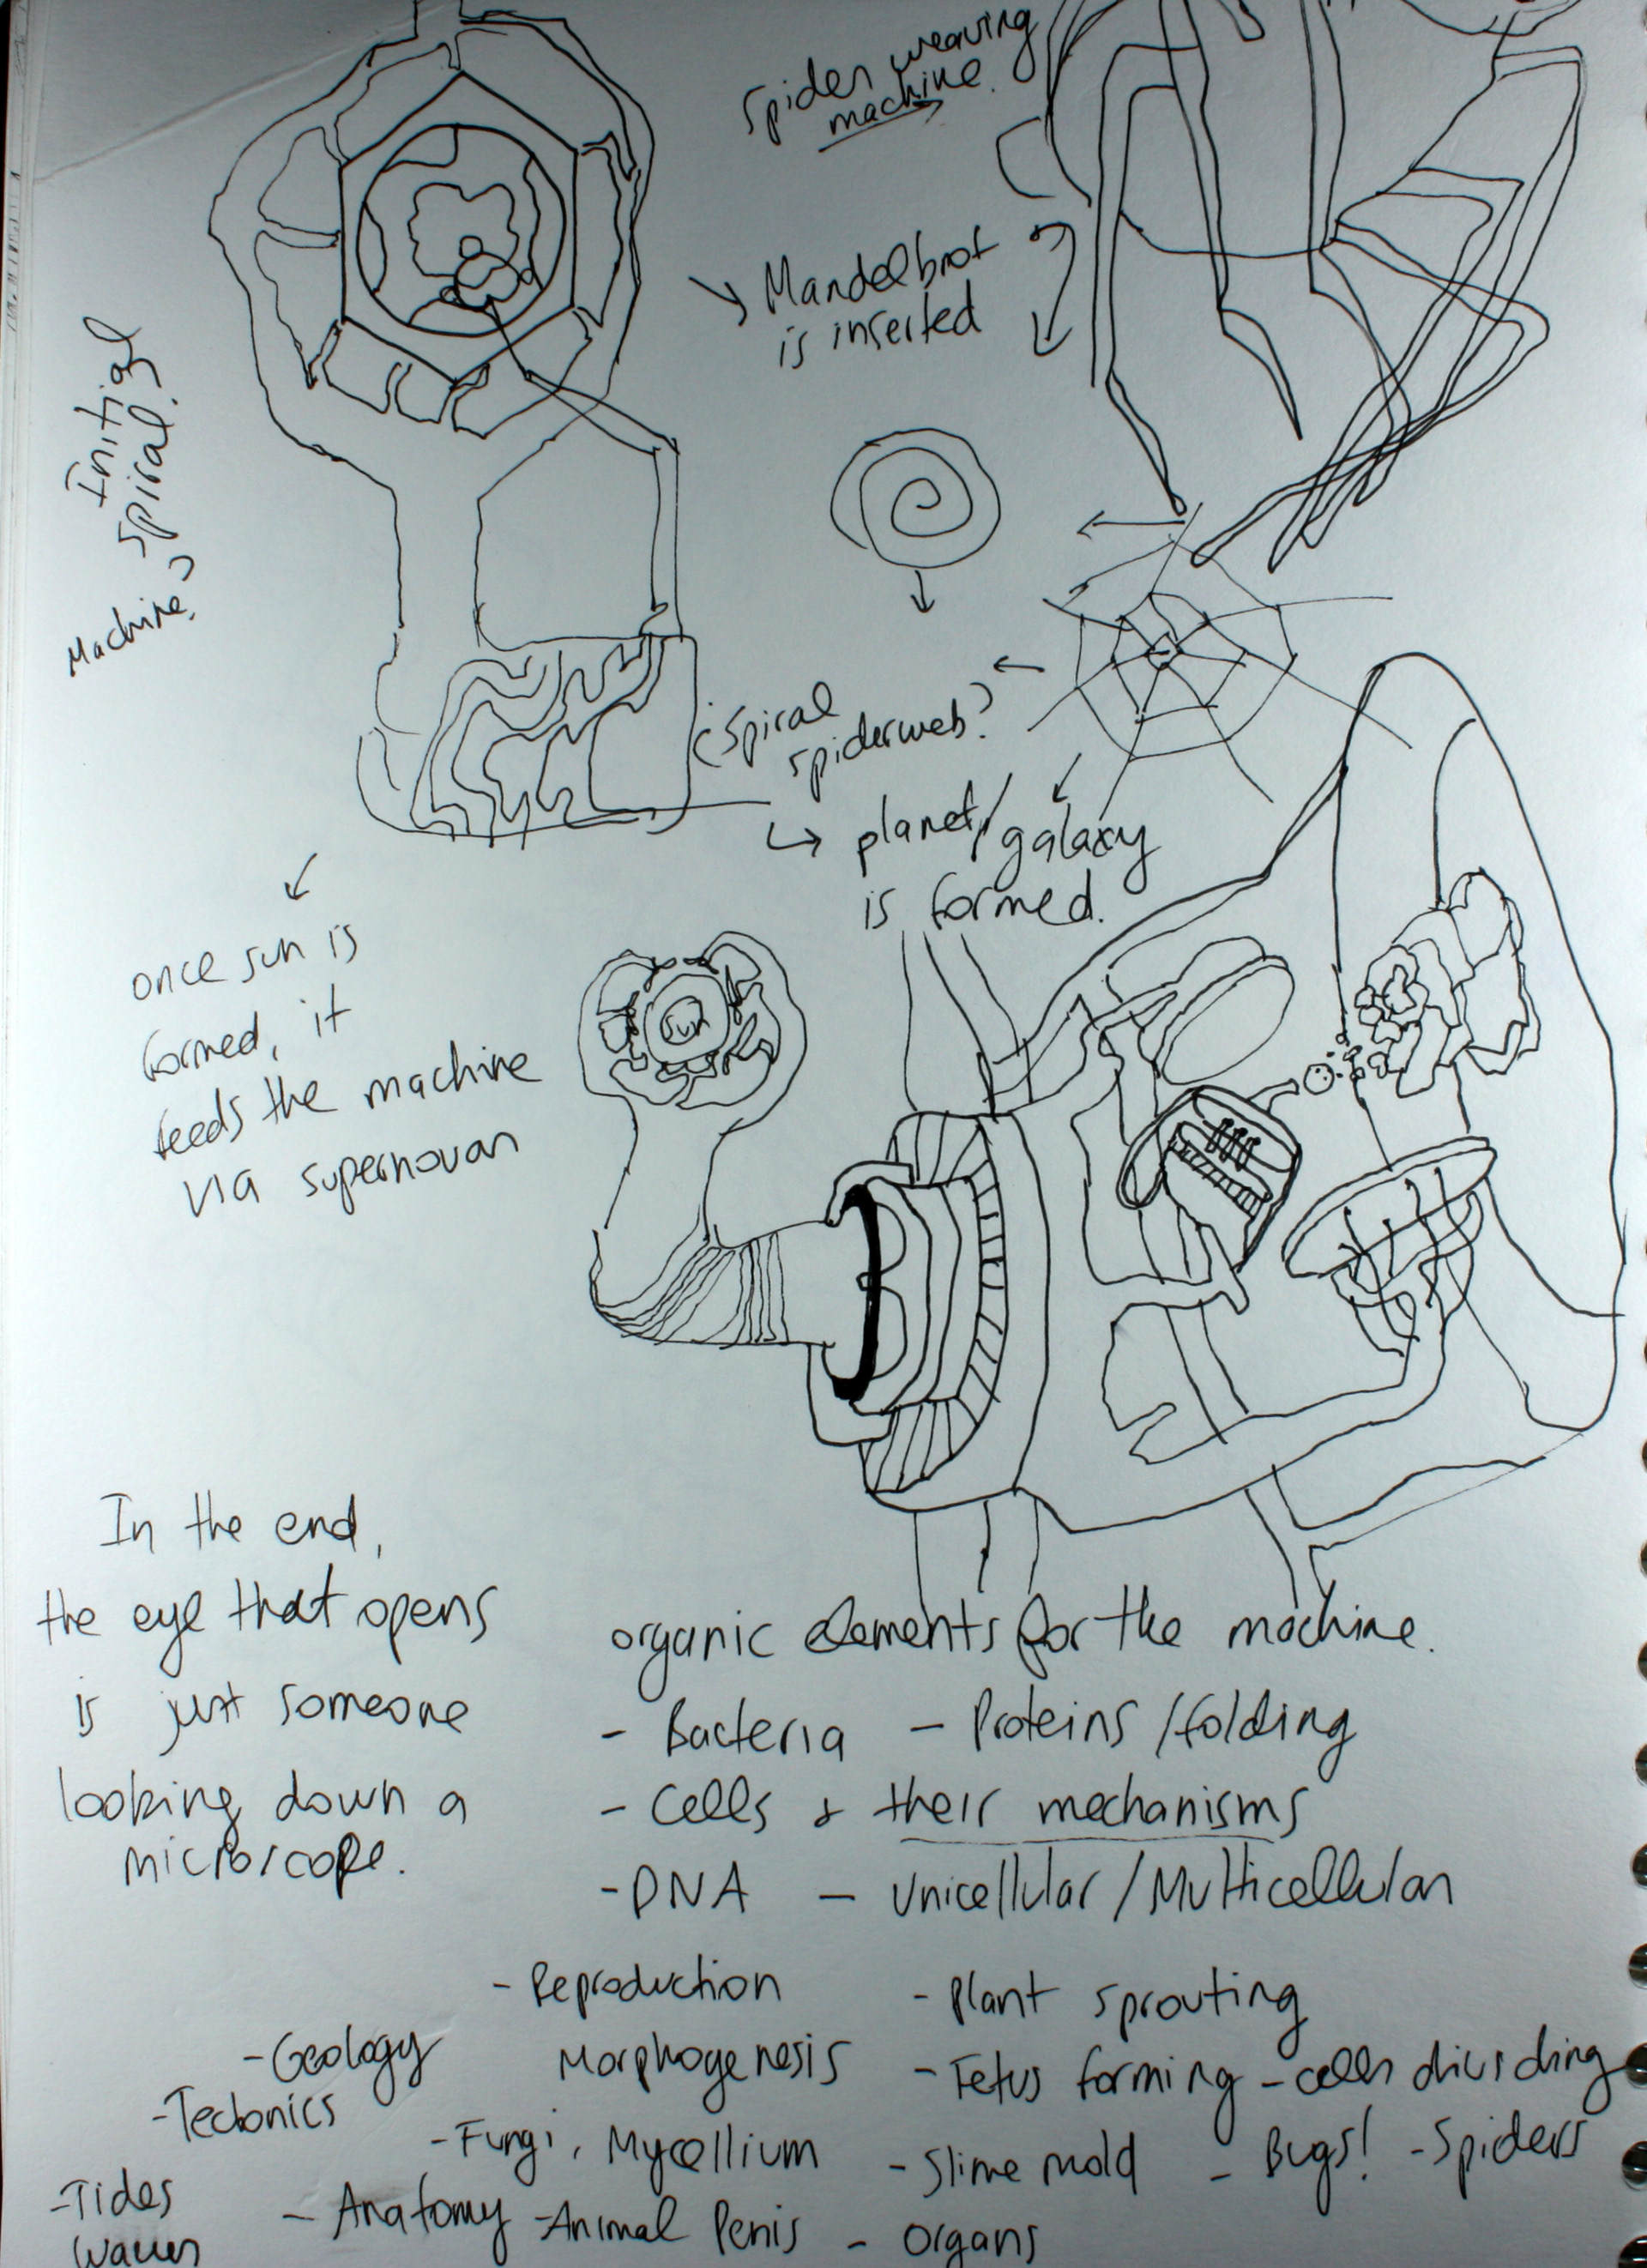 Spider weaving
machine.
Mandelbrot
is inserted
Initial
Spiral
Machine
(Spiral
spiderweb?)
planet/
galaxy
is formed.
once sun is
formed, it
feeds the machine
via supernovan
Sun
In the end,
the eye that opens
is just someone
looking down a
microscope.
organic elements for the machine.
- Bacteria - Proteins /folding
- Cells & their mechanisms
- DNA - Unicellular / Multicellular
- Reproduction - Plant sprouting
- Geology Morphogenesis - Fetus forming - cells dividing
- Tectonics - Fungi, Mycellium - Slime mold - Bugs! - Spiders
- Tides - Anatomy - Animal Penis - Organs
Waves